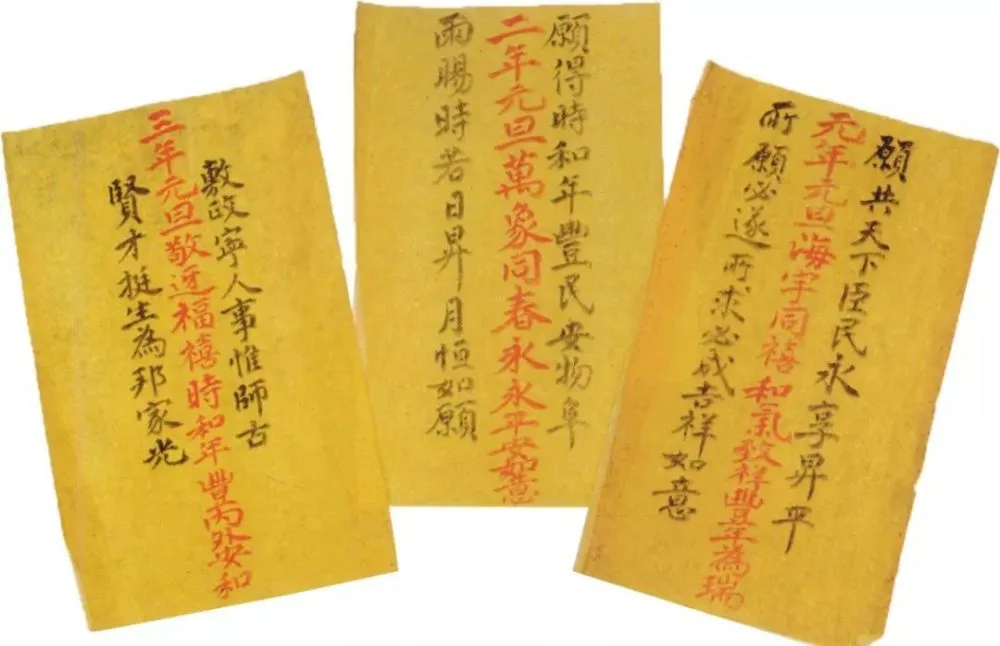 願共天下臣民永享昇平
元年元旦海宇同禧和氣致祥豐年為瑞
所願必遂所求必成吉祥如意
願得時和年豐民安物阜
二年元旦萬象同春永永平安如意
雨賜時若日昇月恒如願
敷政寧人事惟師古
三年元旦敬迓福禧時和年豐内外安和
賢才挺生為邦家光